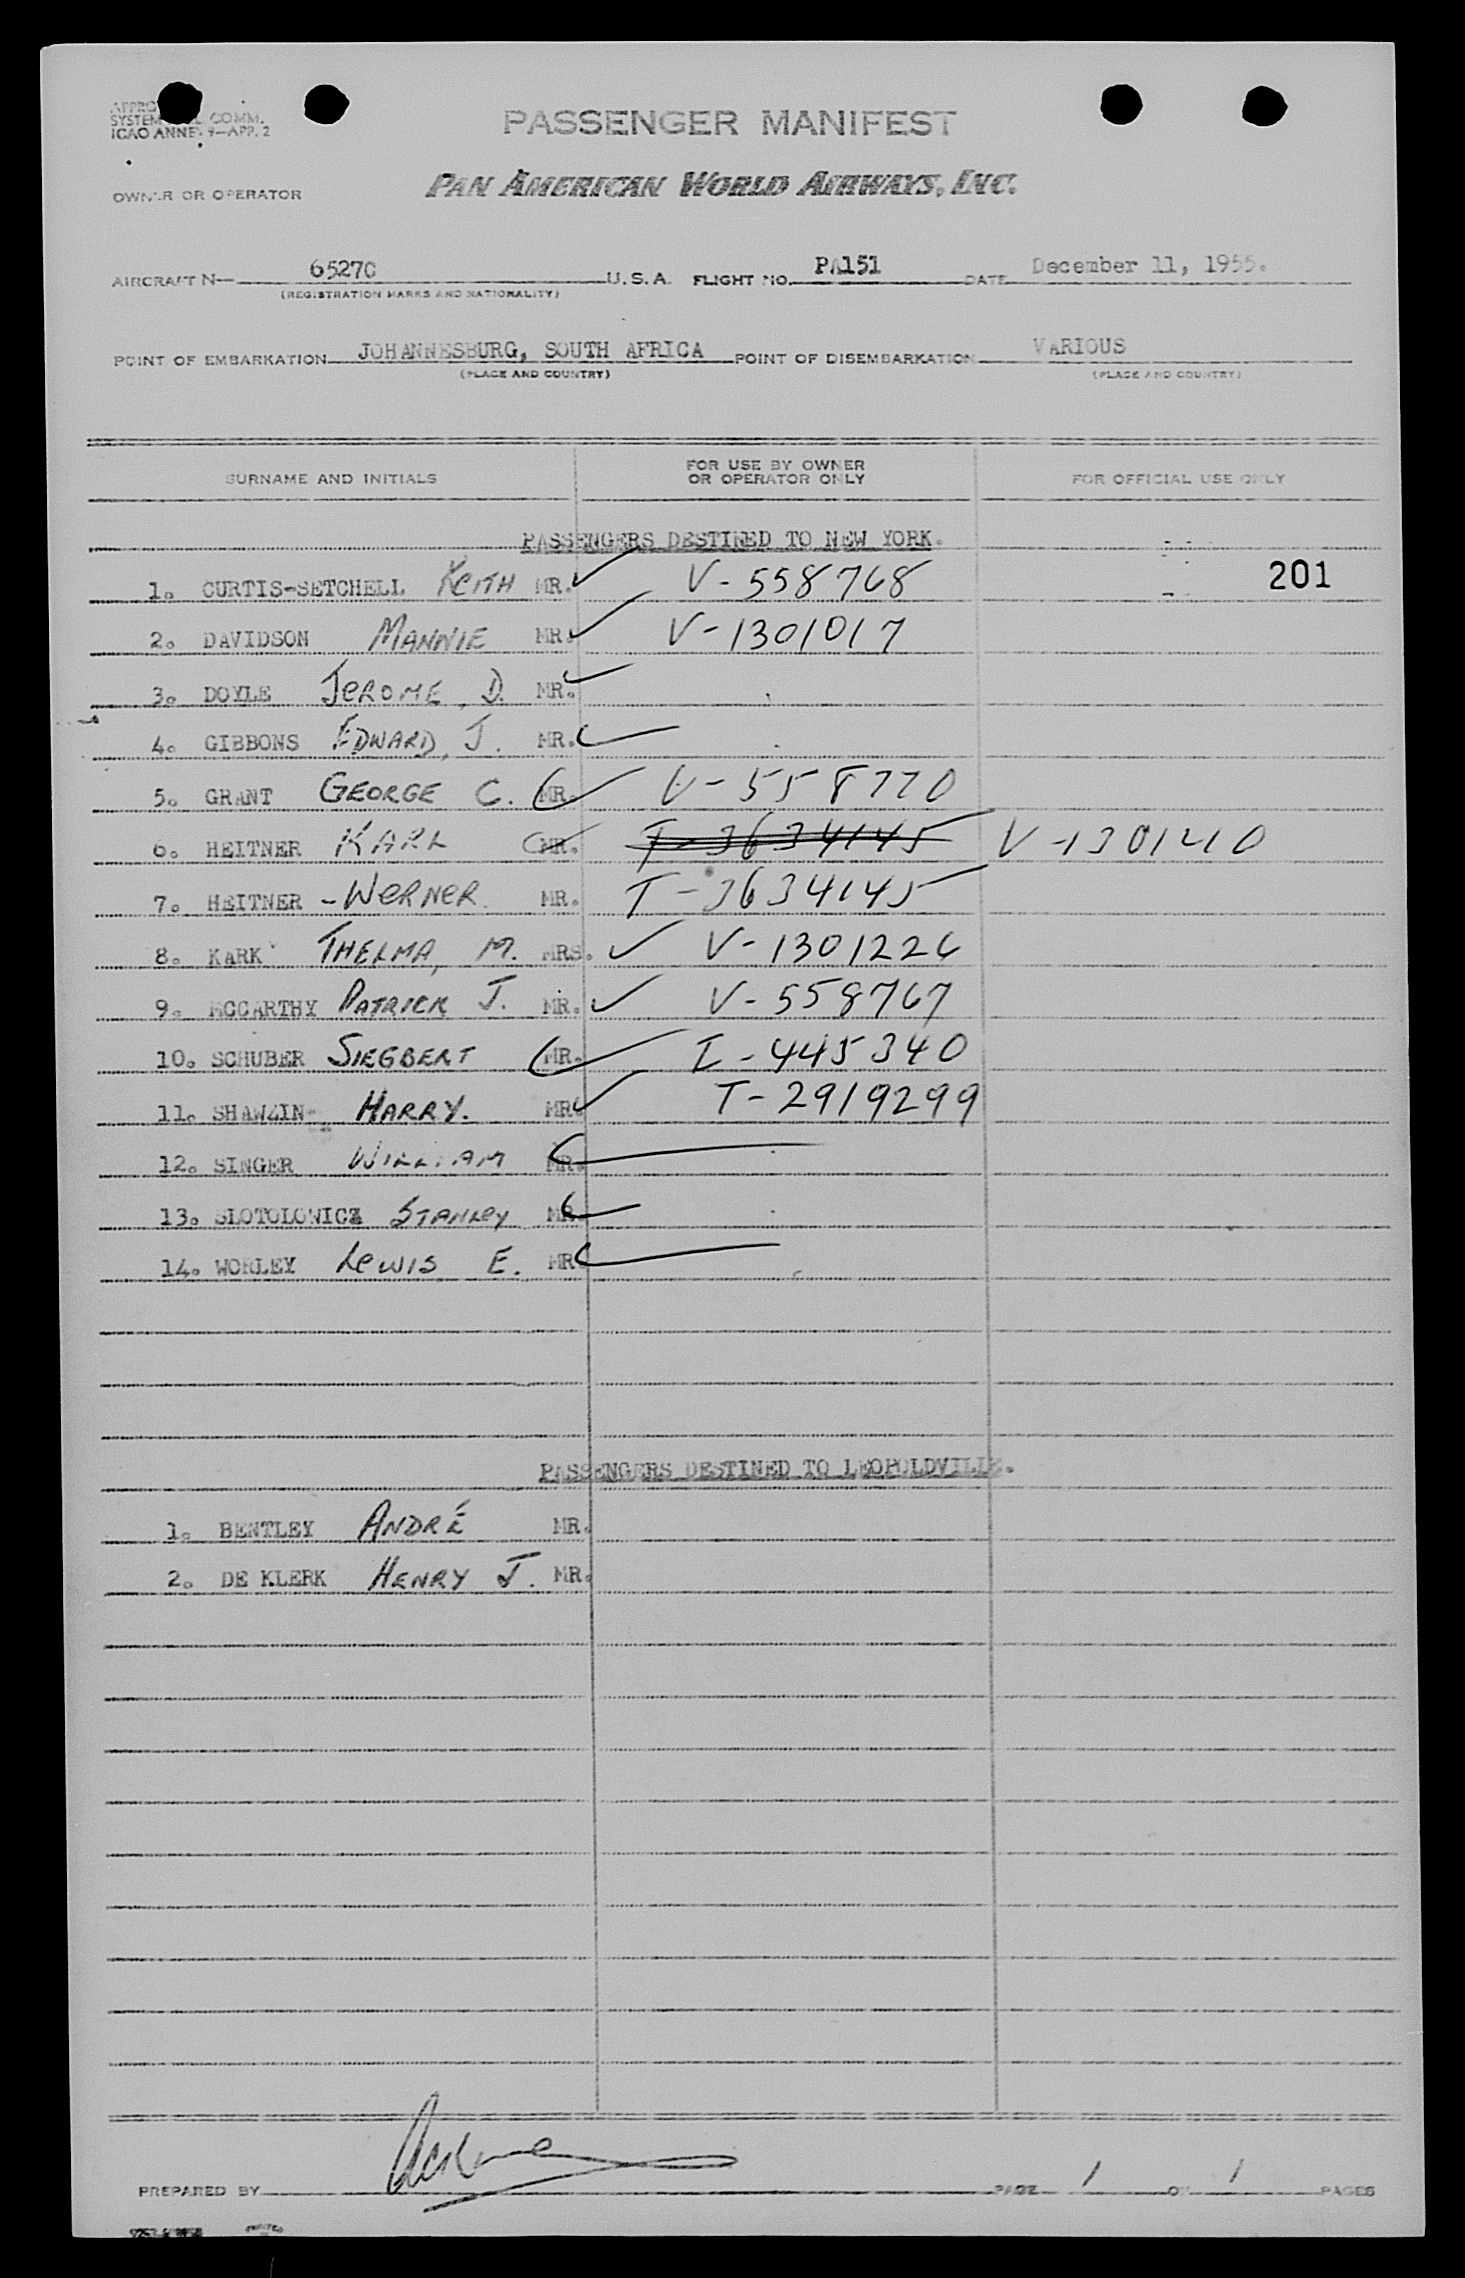 SYSTEM COMM.
ICAO ANNEX 9—APP. 2
PASSENGER MANIFEST
OWNER OR OPERATOR PAN AMERICAN WORLD AIRWAYS, INC.
AIRCRAFT N— 6527C U.S.A. FLIGHT NO. PA151 DATE December 11, 1955.
(REGISTRATION MARKS AND NATIONALITY)
POINT OF EMBARKATION JOHANNESBURG, SOUTH AFRICA POINT OF DISEMBARKATION VARIOUS
(PLACE AND COUNTRY) (PLACE AND COUNTRY)
SURNAME AND INITIALS FOR USE BY OWNER OR OPERATOR ONLY FOR OFFICIAL USE ONLY
PASSENGERS DESTINED TO NEW YORK.
1. CURTIS-SETCHELL KEITH MR. V-558768 201
2. DAVIDSON MANNIE MR. V-1301017
3. DOYLE JEROME, D. MR.
4. GIBBONS EDWARD, J. MR.
5. GRANT GEORGE C. MR. V-558770
6. HEITNER KARL MR. T-3634145 V-1301210
7. HEITNER - WERNER MR. T-3634145
8. KARK THELMA, M. MRS. V-1301226
9. MCCARTHY PATRICK J. MR. V-558767
10. SCHUBER SIEGBERT MR. I-445340
11. SHAWZIN HARRY. MR. T-2919299
12. SINGER WILLIAM MR.
13. SLOTOLOWICZ STANLEY MR.
14. WORLEY LEWIS E. MR.
PASSENGERS DESTINED TO LEOPOLDVILLE.
1. BENTLEY ANDRÉ MR.
2. DE KLERK HENRY J. MR.
PREPARED BY PAGE 1 OF 1 PAGES